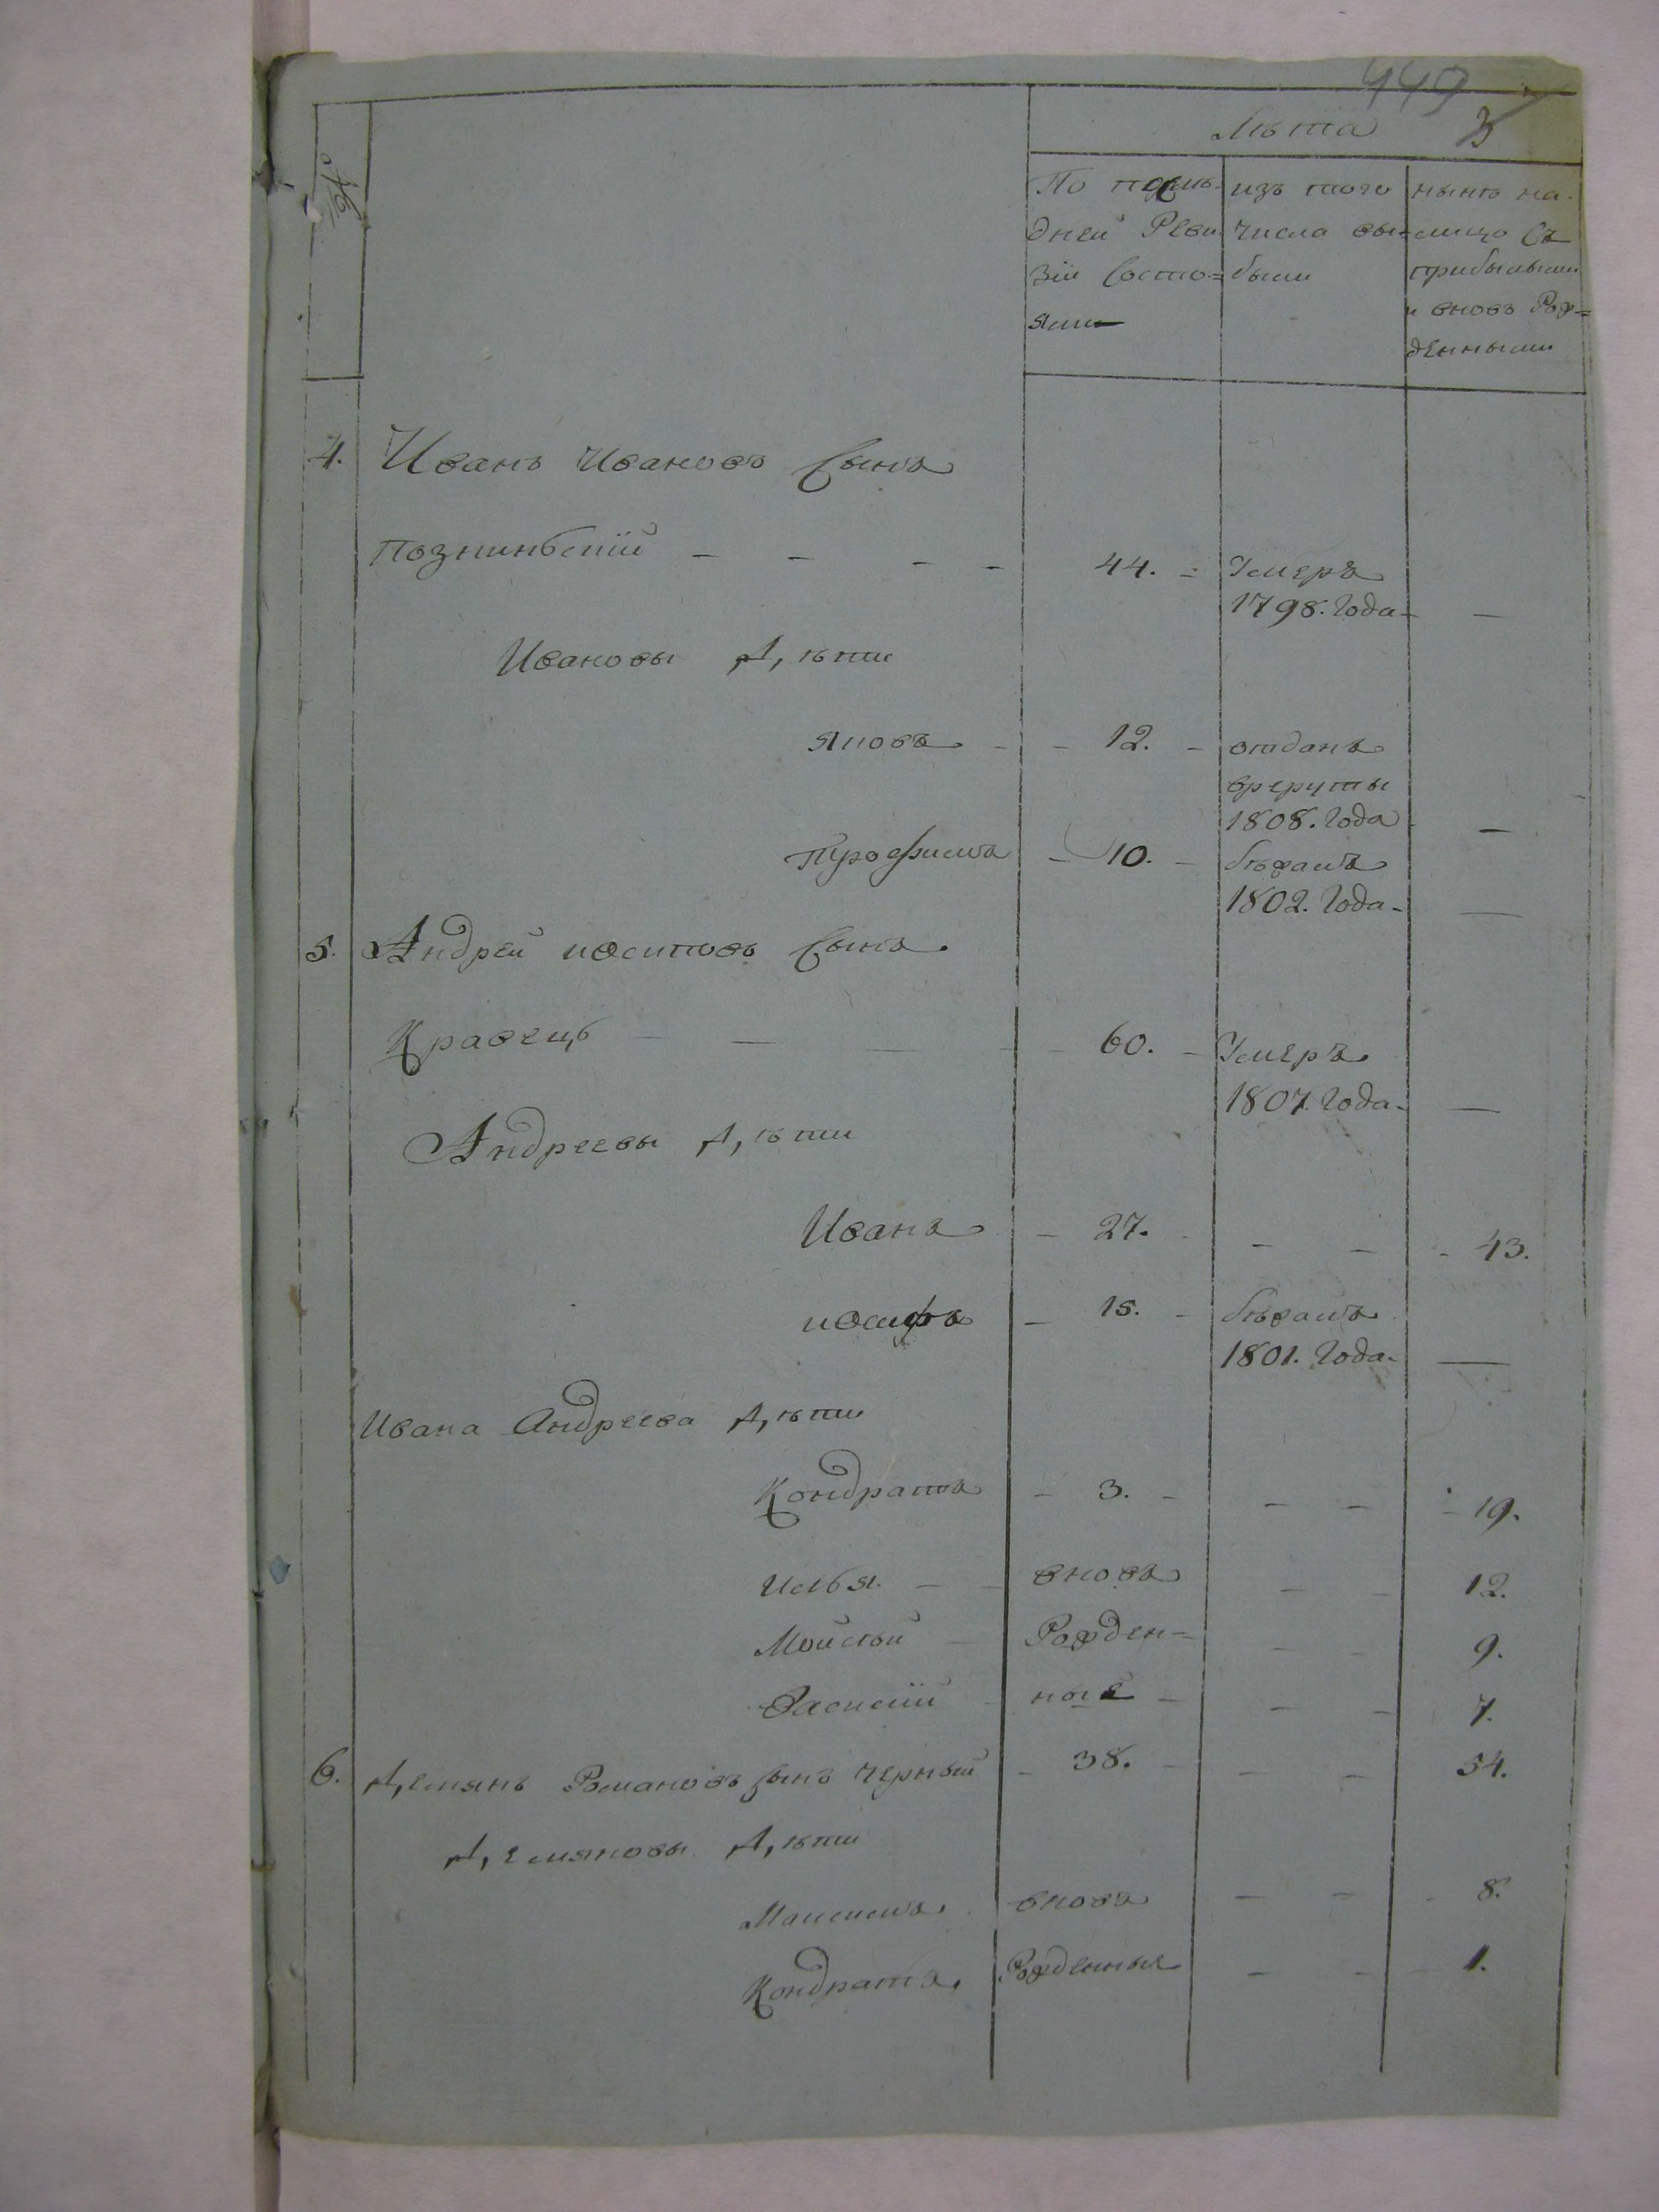 449
Лѣта 3
№
По послѣ- изъ того нынѣ на-
дней Реви числа вы= лицо Съ
зіи Состо= были прибылыми
яли и вновь Рож=
денными
4. Иванъ Ивановъ Сынъ
Познинскій - - - - 44. - Умеръ
1798. Года - —
Ивановы Дѣти
Яковъ - - 12. - отданъ
врекруты
1808. Года —
Трофимъ - 10. - бѣжалъ
1802. Года - —
5. Андрей иосиповъ Сынъ
Кравецъ — — — - 60. - Умеръ
1807. Года - —
Андреевы Дѣти
Иванъ - 27. - - - - 43.
иосифъ - 15. - бѣжалъ
1801. Года - —
Ивана Андреева Дѣти
Кондратъ - 3. - - - - 19.
Илья - - вновь - - 12.
Мойсѣй - Рожден= - - 9.
Василій - ные - - - 7.
6. Демянъ Романовъ сынъ Черный - 38. - - - 54.
Демяновы Дѣти
Максимъ вновь - - - 8.
Кондратъ Рожденные - - - 1.